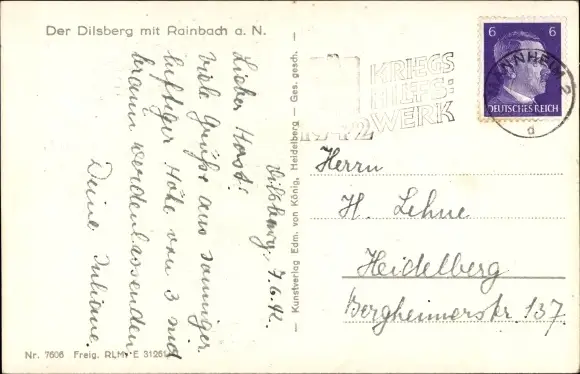 Der Dilsberg mit Rainbach a. N.
Dilsberg, 7.6.42.
Lieber Horst!
Viele Grüße aus sonniger
luftiger Höhe von 3 und
braun werdenlassenden
Deine Juliane.
Kunstverlag Edm. von König, Heidelberg — Ges. gesch.
Nr. 7606 Freig. RLM. E 31261
KRIEGS
HILFS:
WERK
1942
6 6
DEUTSCHES REICH
MANNHEIM 2
a
Herrn
H. Lehne
Heidelberg
Bergheimerstr. 137.